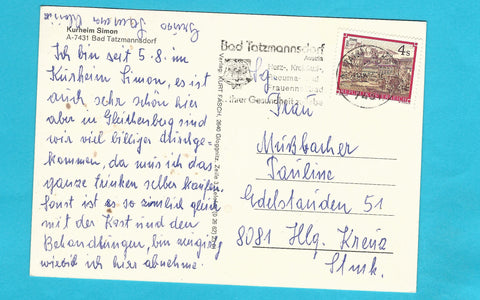 Grüße
Kurheim Simon
A-7431 Bad Tatzmannsdorf
Ich bin seit 5.8. im
Kurheim Simon, es ist
auch sehr schön hier
aber in Gleichenberg sind
wir viel billiger
kommen, da muß ich das
ganze trinken selber kaufen.
Sonst ist es so ziemlich gleich
mit der Kost und den
Behandlungen, bin neugierig
wieviel ich hier abnehme.
Verlag: KURT FASCH, 3640 Gloggnitz, Zeile
Bad Tatzmannsdorf
Austria
Herz-, Kreislauf-,
Rheuma- und
Frauenheilbad
Ihrer Gesundheit zuliebe
4s
Frau
Mußbacher
Pauline
Edelstauden 51
8081 Hlg. Kreuz
Stmk.